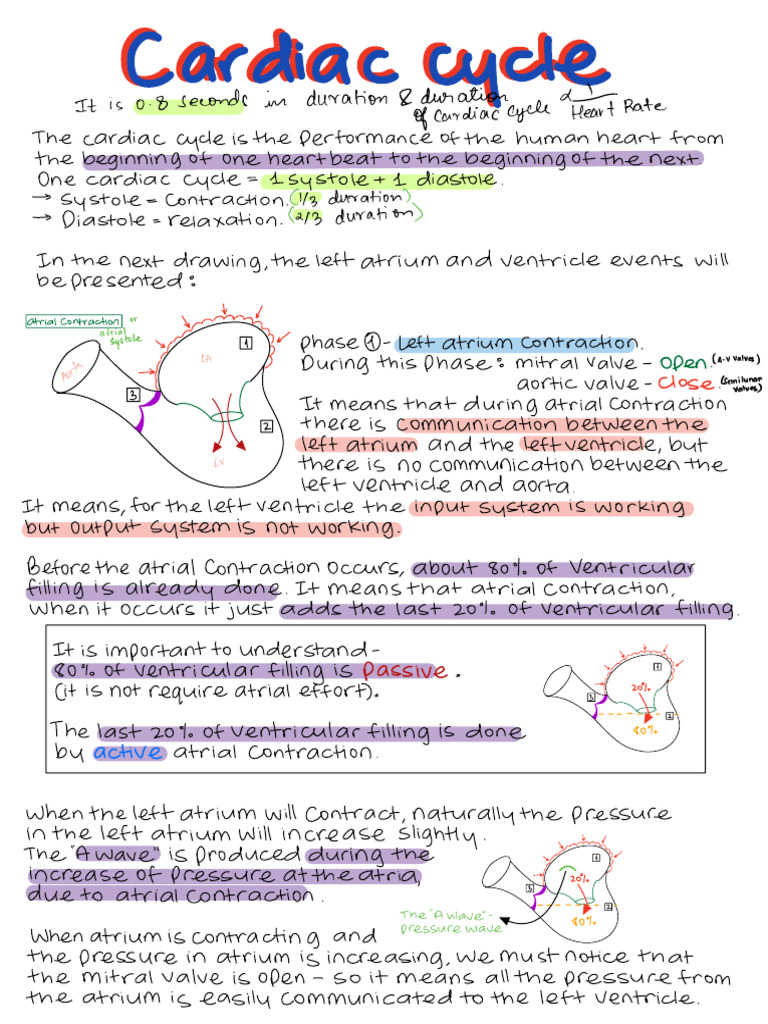 Cardiac cycle
It is 0.8 seconds in duration & duration of cardiac cycle α 1/Heart Rate
The cardiac cycle is the performance of the human heart from
the beginning of one heartbeat to the beginning of the next
One cardiac cycle = 1 systole + 1 diastole.
→ Systole = Contraction. (1/3 duration)
→ Diastole = relaxation. (2/3 duration)
In the next drawing, the left atrium and ventricle events will
be presented:
atrial contraction or
atrial
systole
Aorta
LA
1
3
2
LV
phase 1 - Left atrium contraction.
During this phase: mitral valve - open. (A-V valves)
aortic valve - close. (Semilunar valves)
It means that during atrial contraction
there is communication between the
left atrium and the left ventricle, but
there is no communication between the
left ventricle and aorta.
It means, for the left ventricle the input system is working
but output system is not working.
Before the atrial contraction occurs, about 80% of ventricular
filling is already done. It means that atrial contraction,
when it occurs it just adds the last 20% of ventricular filling.
It is important to understand -
80% of ventricular filling is passive.
(it is not require atrial effort).
The last 20% of ventricular filling is done
by active atrial contraction.
1
20%
3
2
80%
When the left atrium will contract, naturally the pressure
in the left atrium will increase slightly.
The "A wave" is produced during the
increase of pressure at the atria,
due to atrial contraction.
1
20%
3
2
80%
The "A wave" -
pressure wave
When atrium is contracting and
the pressure in atrium is increasing, we must notice that
the mitral valve is open - so it means all the pressure from
the atrium is easily communicated to the left ventricle.